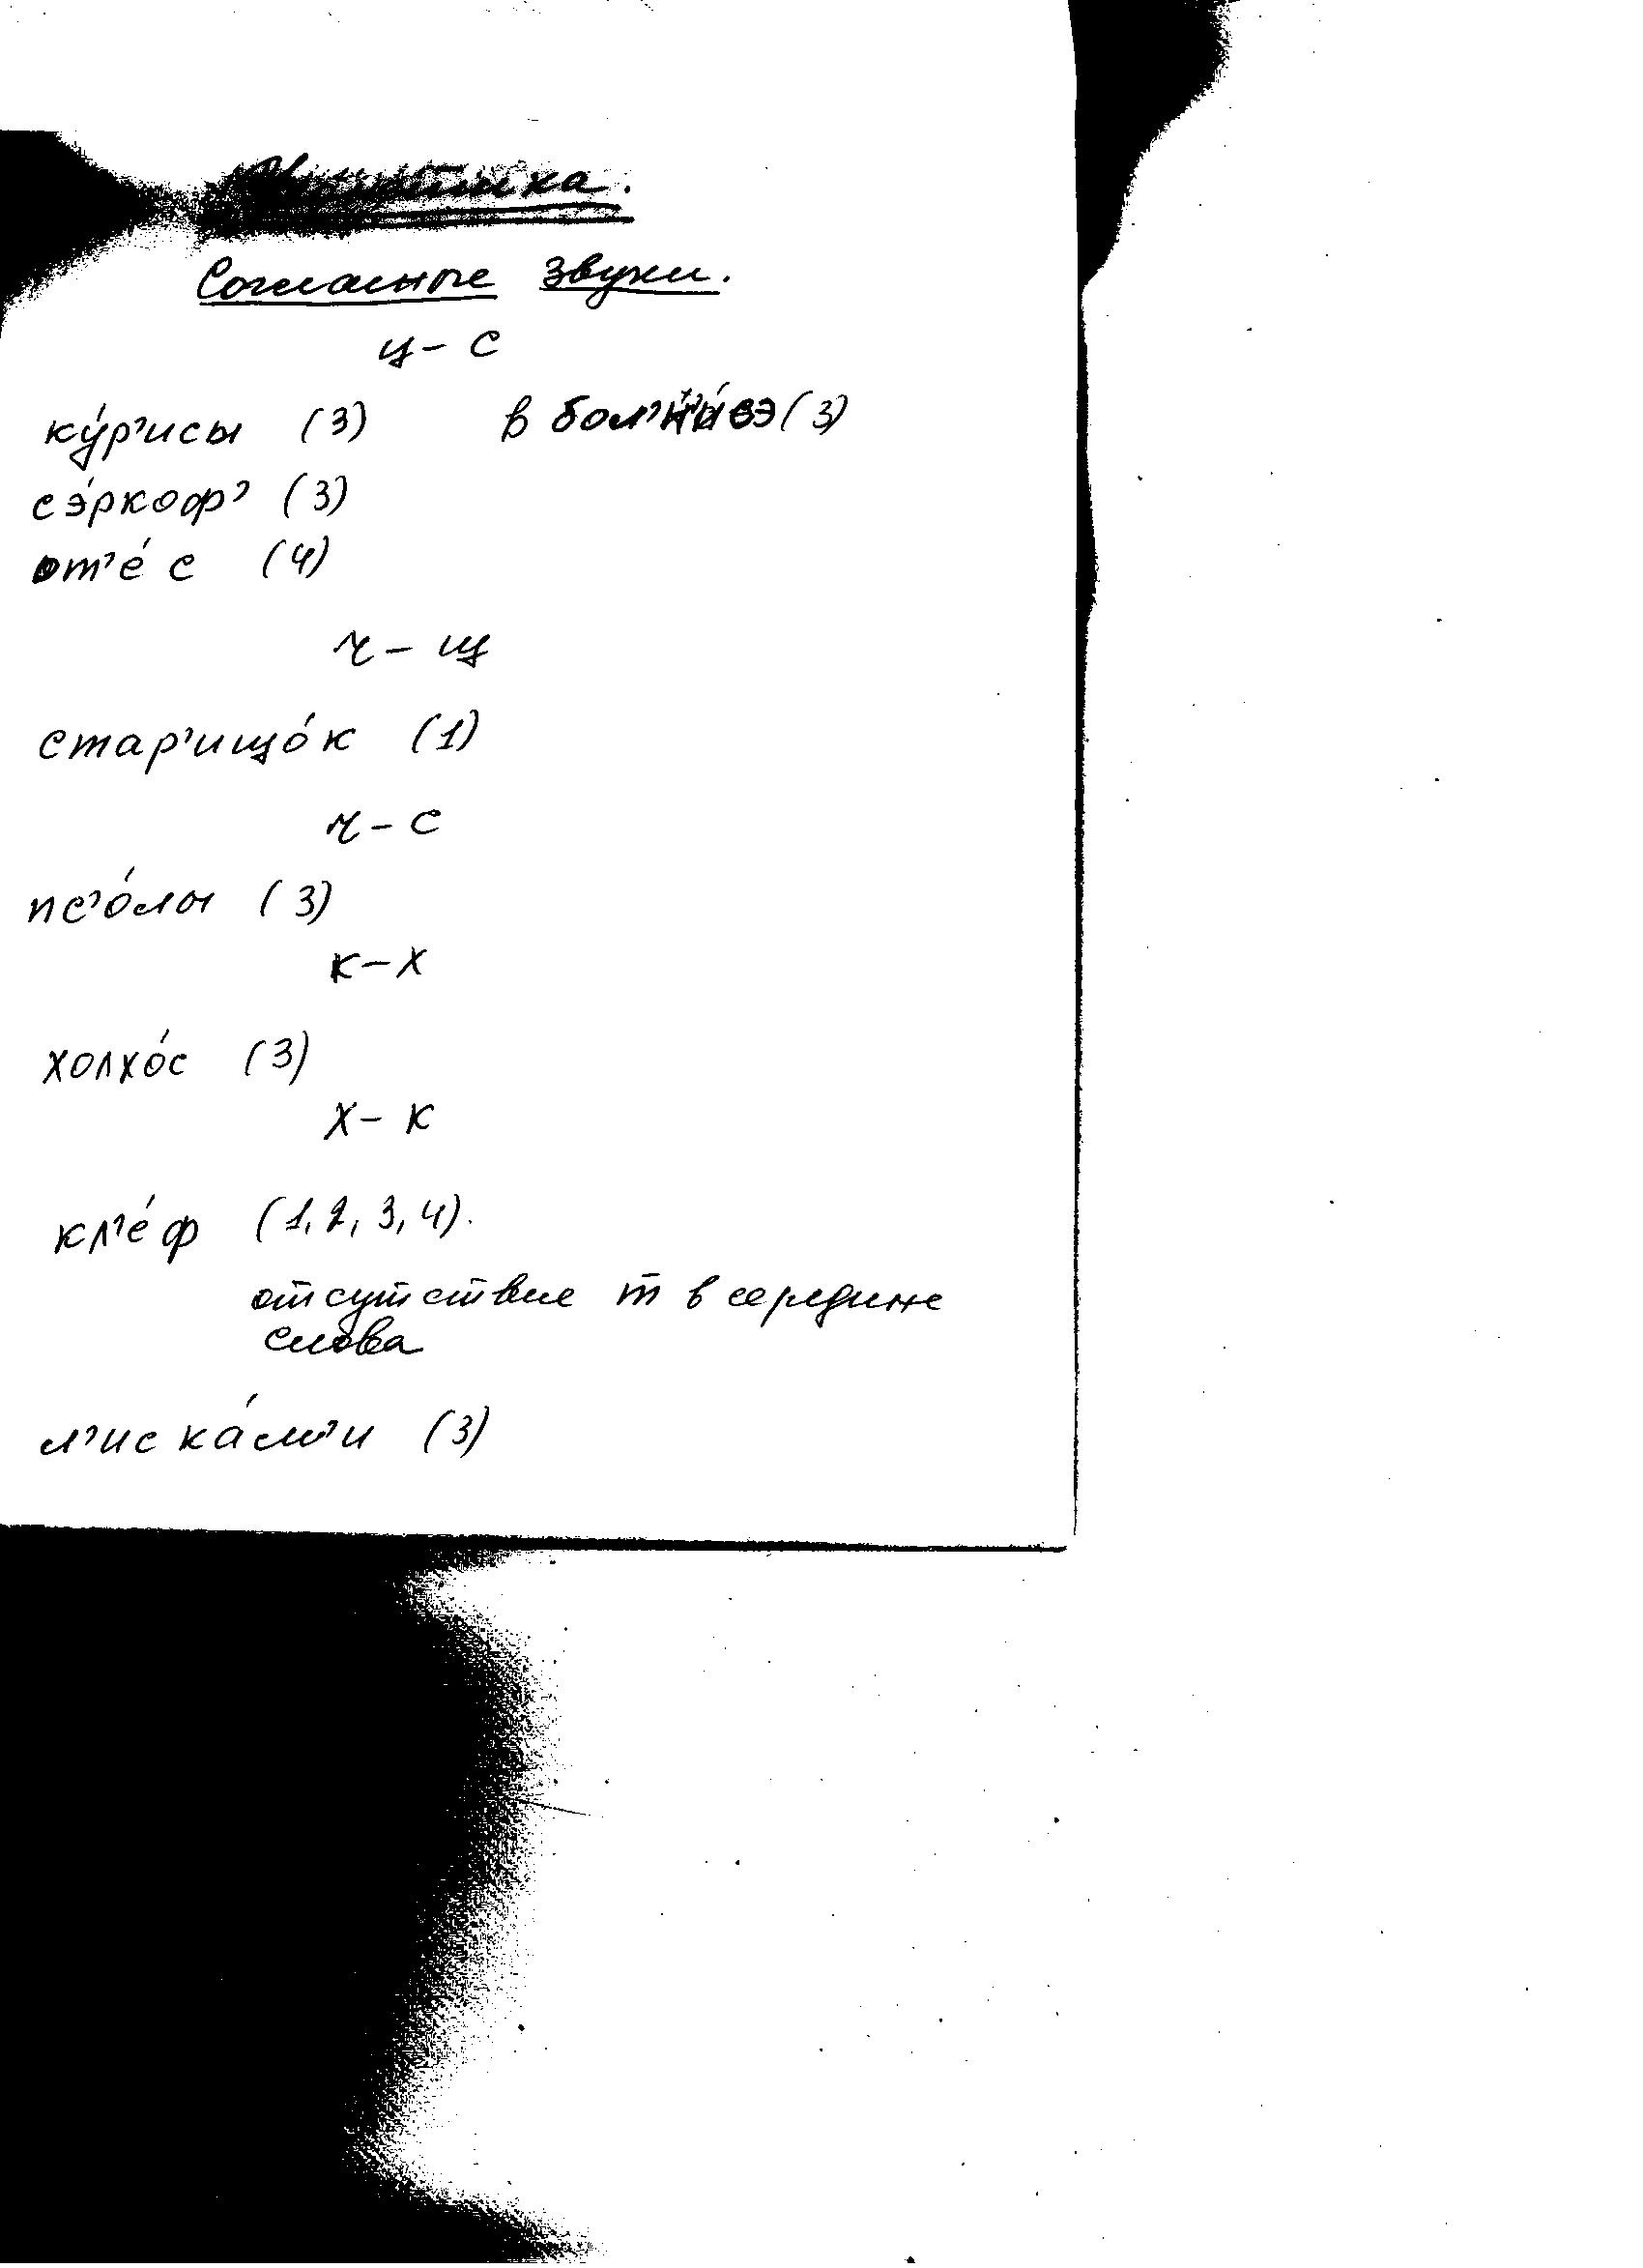 Фонетика.
Согласные звуки.
ц – с
ку́р'исы (3) в бол'н'и́сэ (3)
сэ́ркоф' (3)
от'е́с (4)
ч – щ
стар'ищо́к (1)
ч – с
пс'о́лы (3)
к – х
холхо́с (3)
х – к
кл'е́ф (1, 2, 3, 4).
отсутствие т в середине
слова
л'иска́м'и (3)